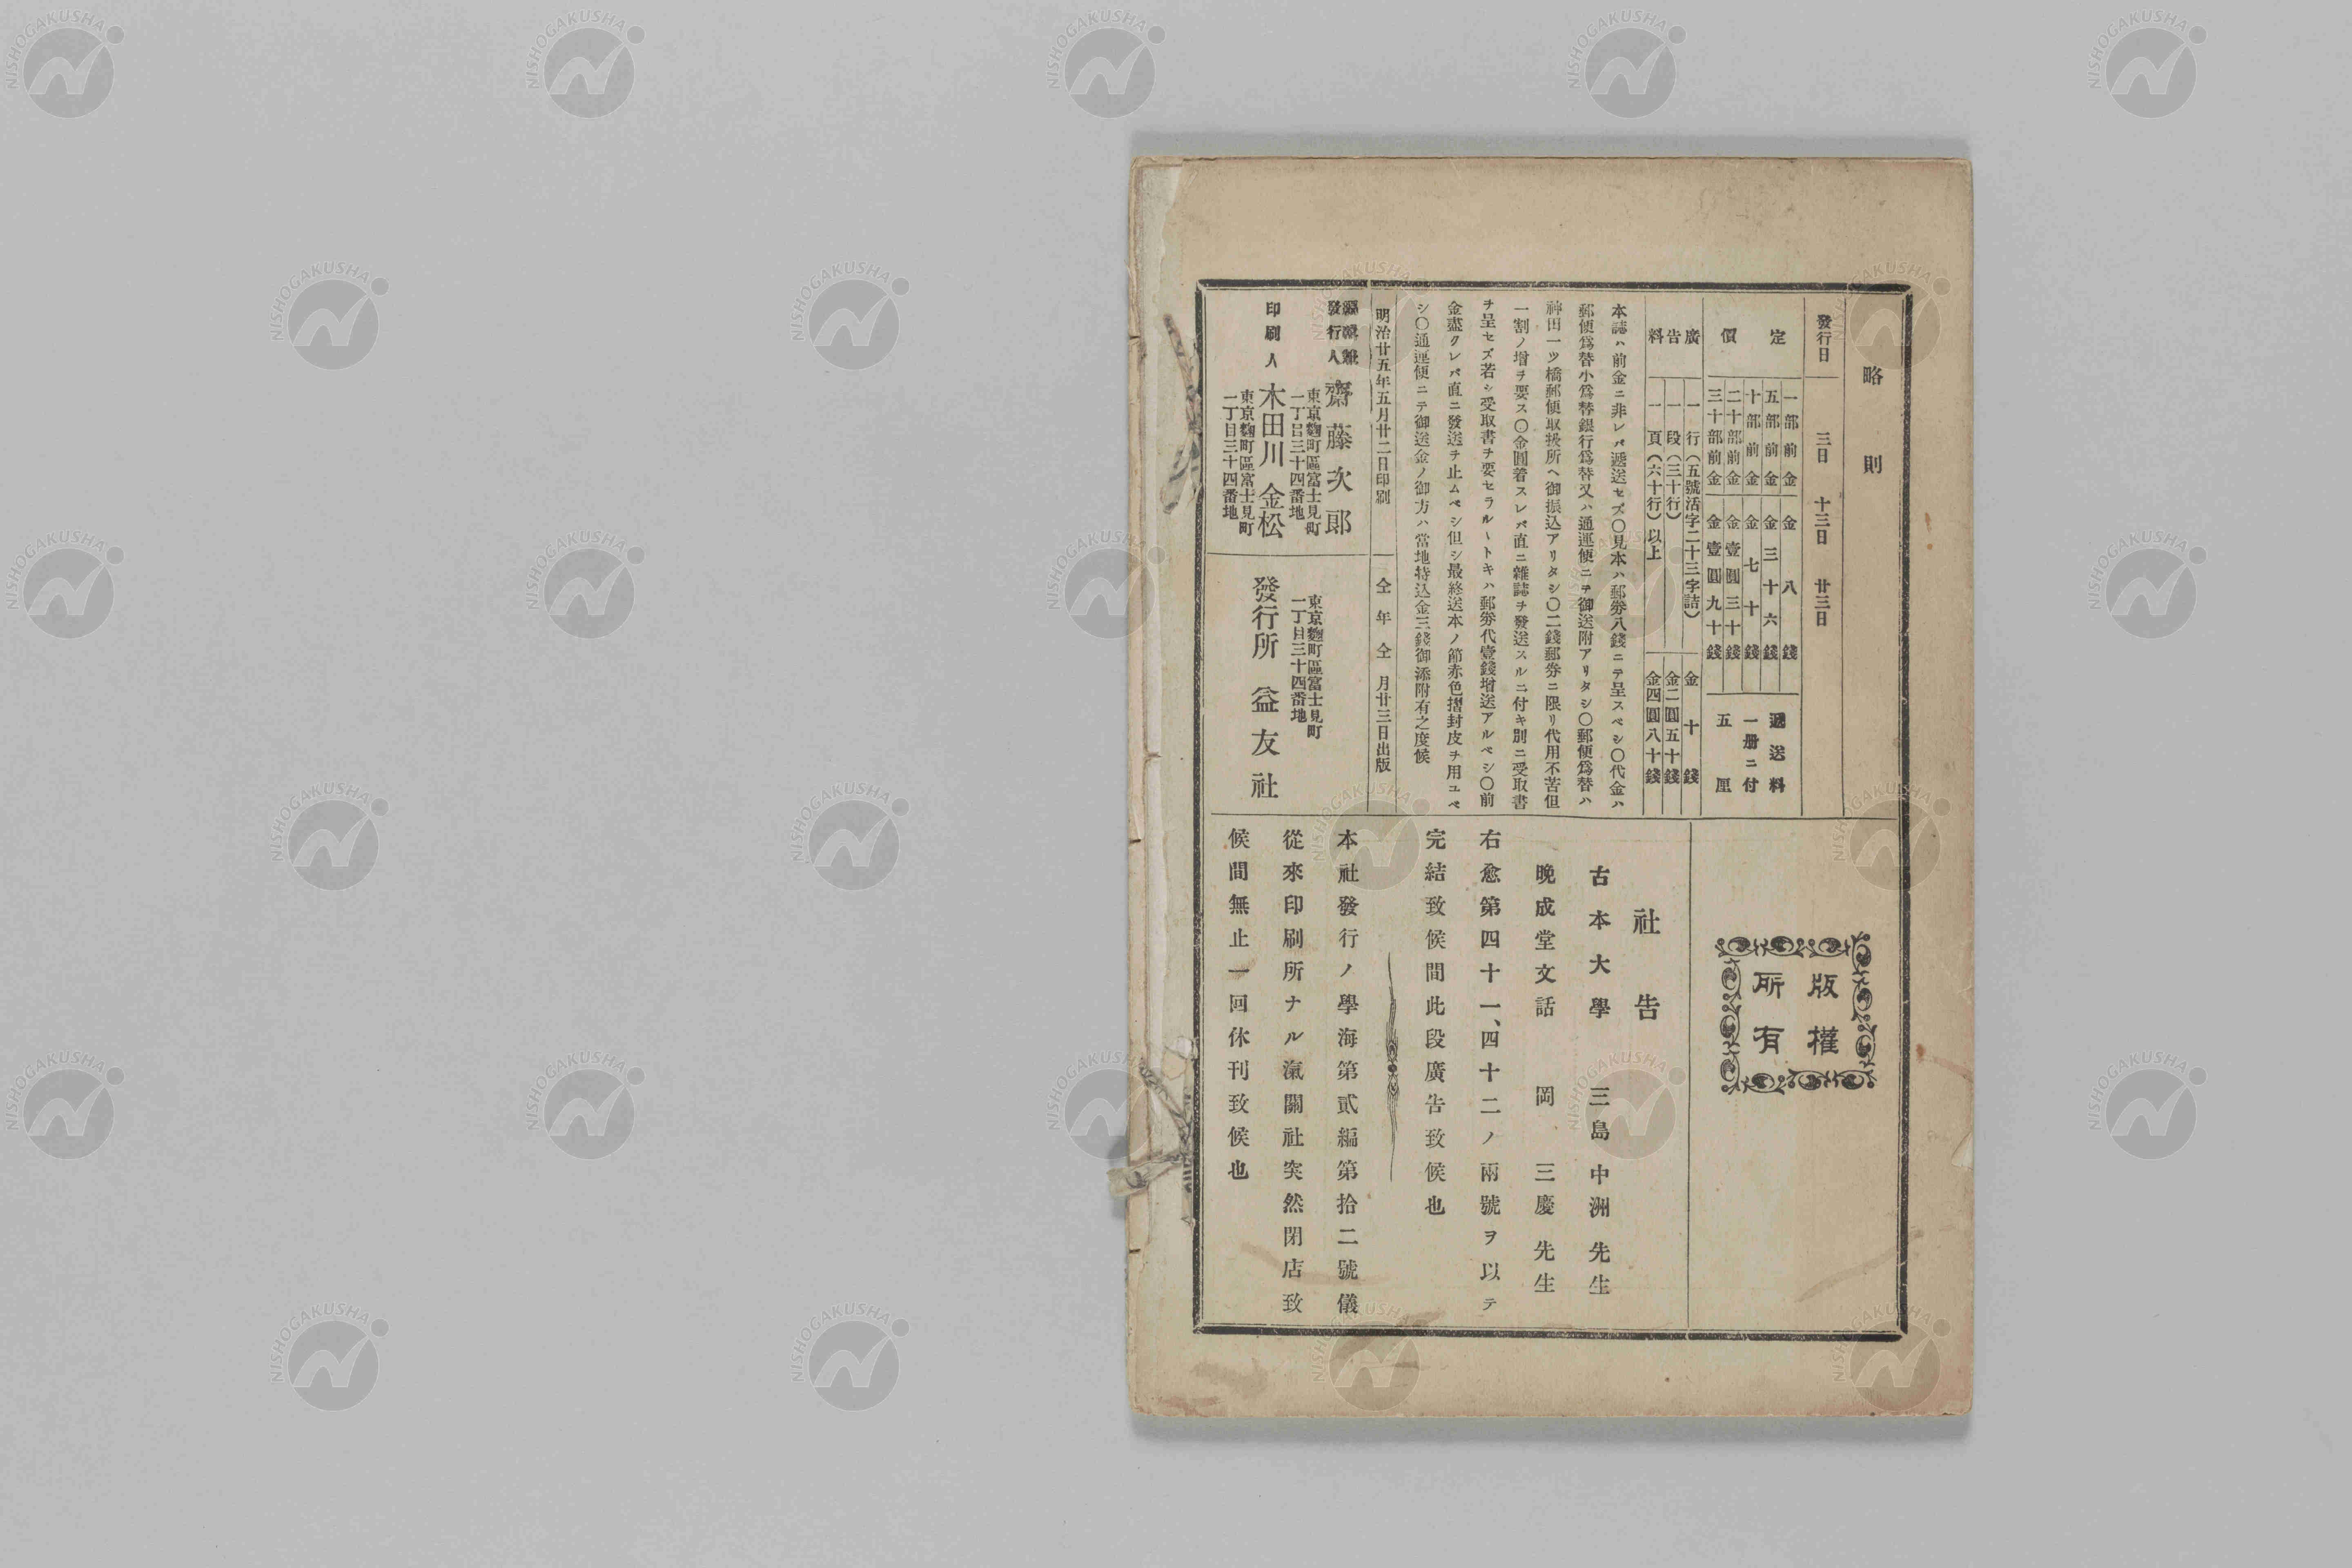 略則
發行日 三日 十三日 廿三日
定價
一部前金 金八錢
五部前金 金三十六錢
十部前金 金七十錢
二十部前金 金壹圓三十錢
三十部前金 金壹圓九十錢
遞送料
一册ニ付
五厘
廣告料
一行(五號活字二十三字詰) 金十錢
一段(三十行) 金二圓五十錢
一頁(六十行)以上 金四圓八十錢
本誌ハ前金ニ非レバ遞送セズ〇見本ハ郵券八錢ニテ呈スベシ〇代金ハ
郵便爲替小爲替銀行爲替又ハ通運便ニテ御送附アリタシ〇郵便爲替ハ
神田一ツ橋郵便取扱所ヘ御振込アリタシ〇二錢郵券ニ限リ代用不苦但
一割ノ增ヲ要ス〇金圓着スレバ直ニ雜誌ヲ發送スルニ付キ別ニ受取書
ヲ呈セズ若シ受取書ヲ要セラルヽトキハ郵券代壹錢增送アルベシ〇前
金盡クレバ直ニ發送ヲ止ムベシ但シ最終送本ノ節赤色摺封皮ヲ用ユベ
シ〇通運便ニテ御送金ノ御方ハ當地持込金三錢御添附有之度候
明治廿五年五月廿二日印刷 仝年仝月廿三日出版
發行人 齋藤次郎
東京麴町區富士見町
一丁目三十四番地
印刷人 木田川金松
東京麴町區富士見町
一丁目三十四番地
東京麴町區富士見町
一丁目三十四番地
發行所 益友社
版權
所有
社告
古本大學 三島中洲先生
晩成堂文話 岡三慶先生
右愈第四十一、四十二ノ兩號ヲ以テ
完結致候間此段廣告致候也
本社發行ノ學海第貳編第拾二號儀
從來印刷所ナル滊關社突然閉店致
候間無止一回休刊致候也
NISHOGAKUSHA